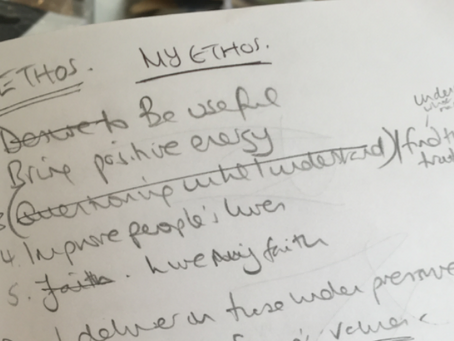 ETHOS. MY ETHOS.
Desire to Be useful
Bring positive energy
(Questioning what I understand) find the
4. Improve people's lives
5. faith. Live my faith
deliver under pressure
values